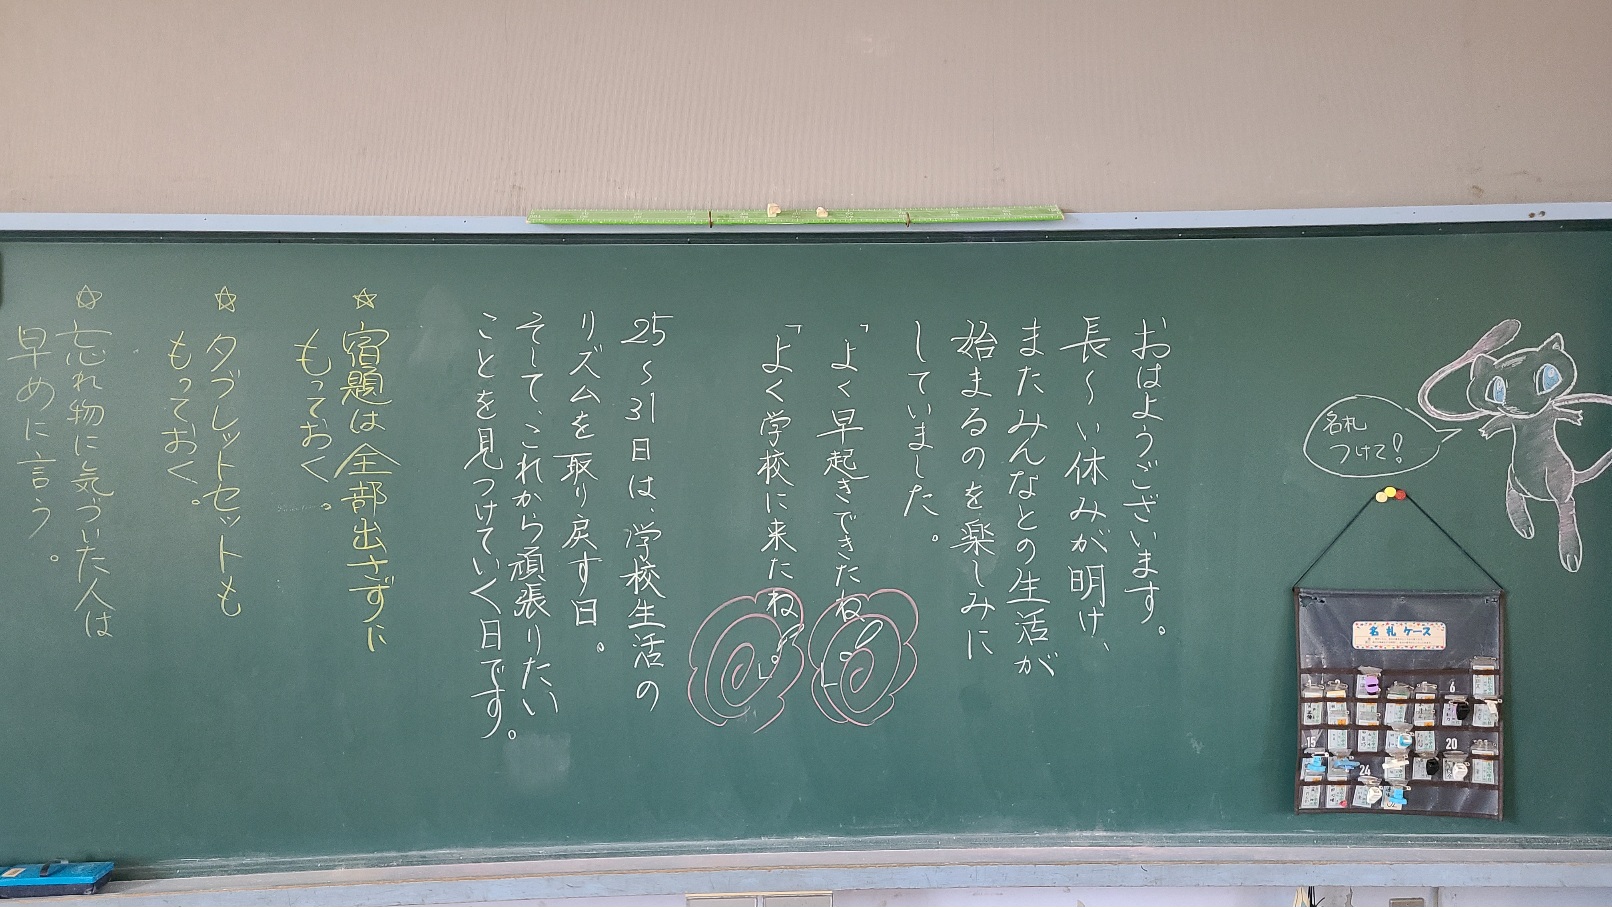 名札
つけて!
おはようございます。
長〜い休みが明け、
またみんなとの生活が
始まるのを楽しみに
していました。
「よく早起きできたね。」
「よく学校に来たね。」
25〜31日は、学校生活の
リズムを取り戻す日。
そして、これから頑張りたい
ことを見つけていく日です。
☆宿題は全部出さずに
もっておく。
☆タブレットセットも
もっておく。
☆忘れ物に気づいた人は
早めに言う。
名札ケース
6
15
20
21
24